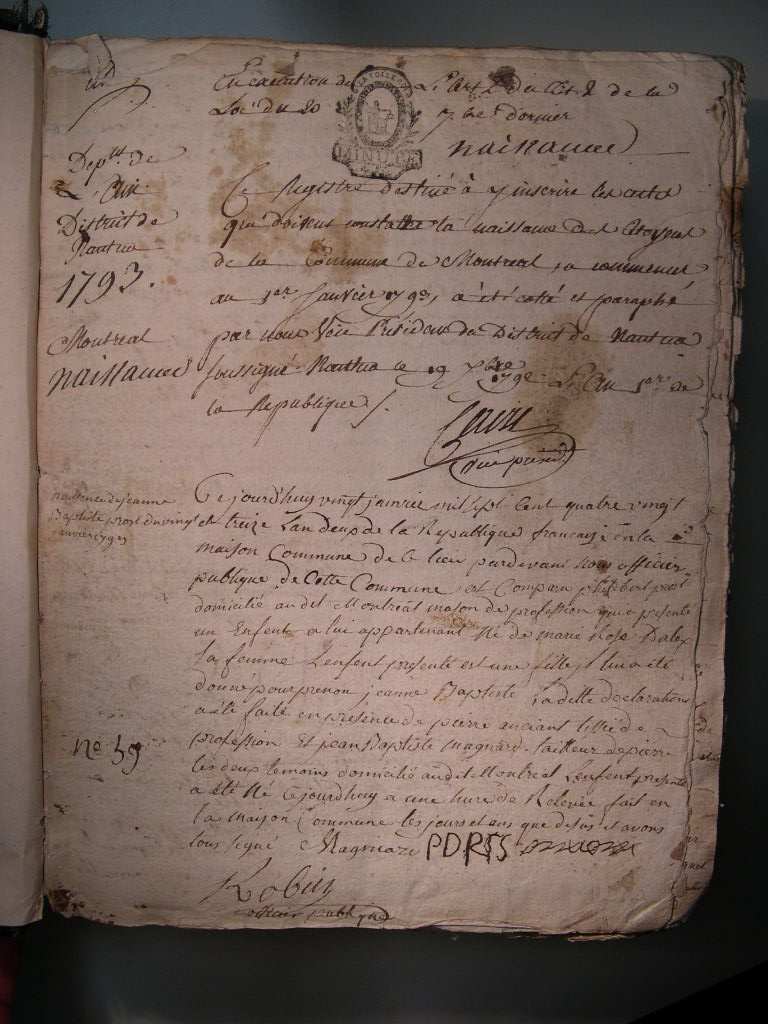 En execution de L'art 2 du tit 2 de la
Loi du 20 7bre dernier
naissances
Depmt de
L'Ain
District de
Nantua
1793.
Montreal
naissances
Ce Registre destiné à y inscrire les actes
qui doivent constater la naissance des Citoyens
de la Commune de Montreal, a commencer
au 1er Janvier 1793, a été cotté et paraphé
par nous Vice Président du District de Nantua
soussigné. Nantua le 19 Xbre 1792 L'an 1er de
la Republique
vice présid
naissance de jeanne
Baptiste prost du vingt
janvier 1793
Cejourd'huy vingt janvier mil sept cent quatre vingt
et treize Lan deux de la Republique francaise en la
maison Commune de ce lieu pardevant nous officier
publique de Cette Commune est Comparu philibert prost
domicilié audit Montreal mason de profession que a presenté
un Enfent a lui appartenant Né de marie Rose
sa femme Lenfent presenté est une fille luy a été
donné pour prenon jeanne Baptiste, la ditte declaration
a été faite en presence de pierre anciant de
profession Et jean Baptiste magnard tailleur de pierre
les deux temoins domicilié audit Montreal Lenfent presenté
a été Né Cejourdhuy a une hure de Relevée fait en
la maison Commune les jours et ans que desus et avons
tous signé PDRTS
no 39
Robin
officier publique